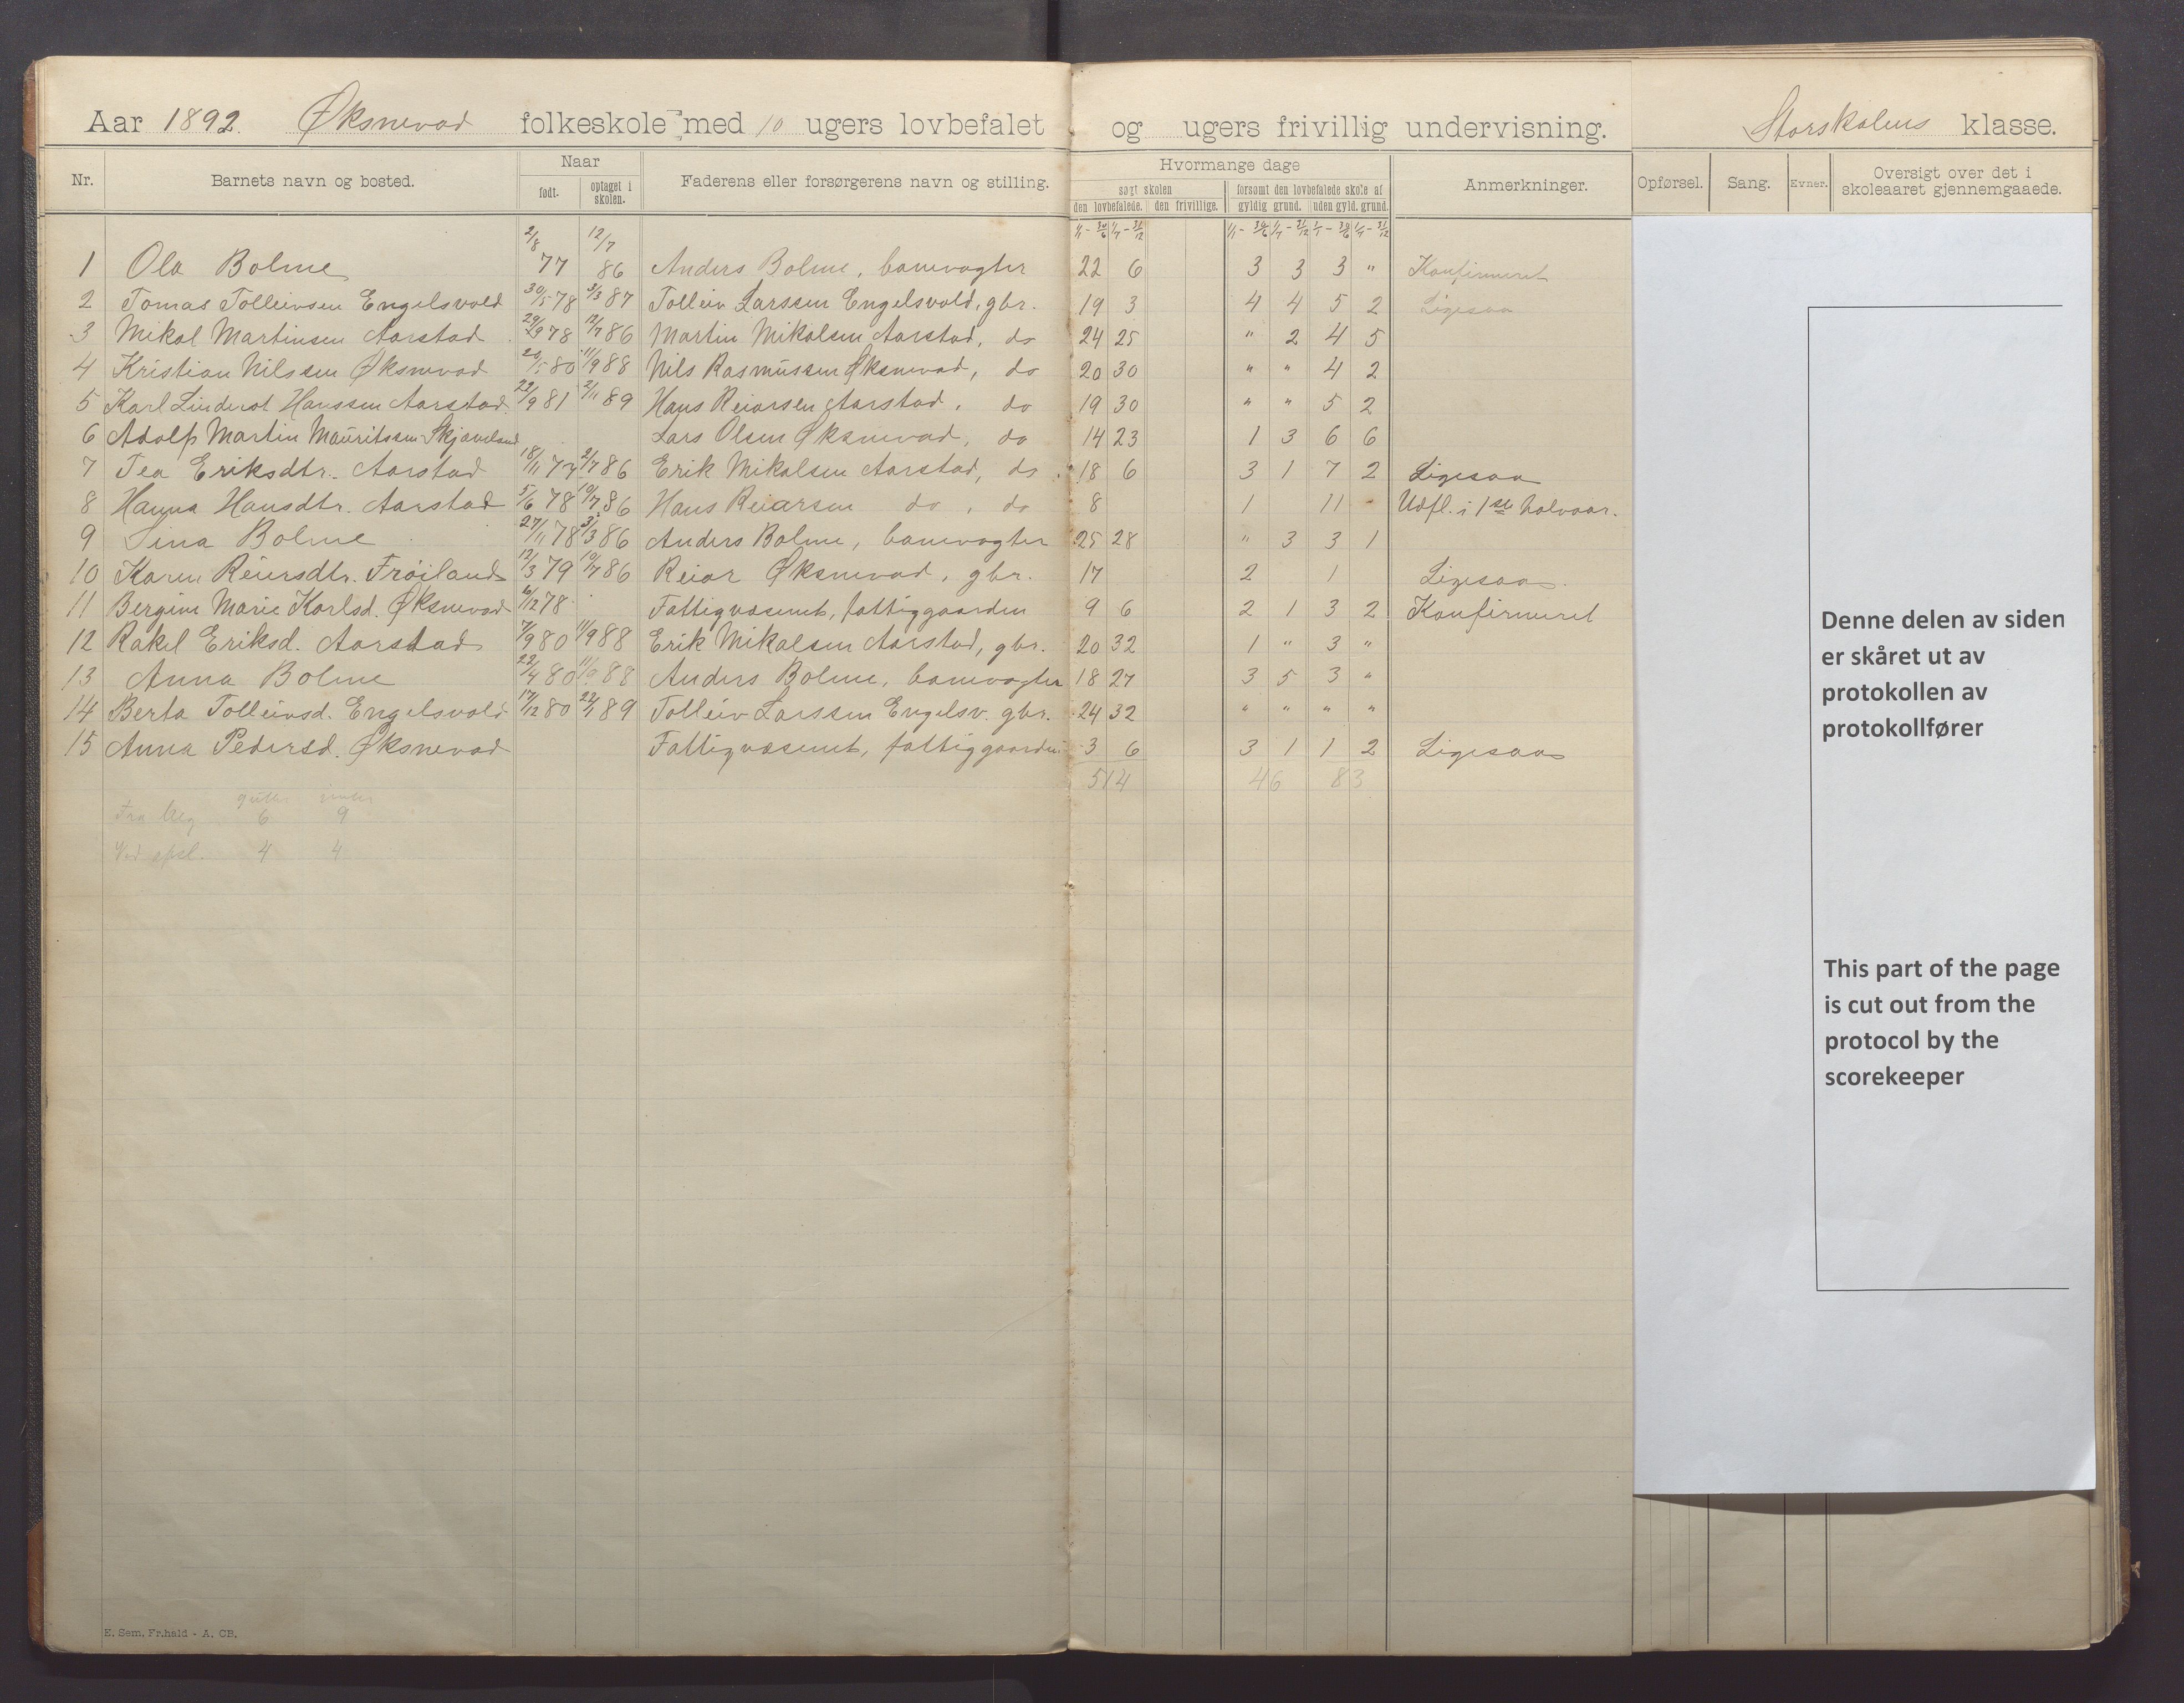 Aar 1892. Øksnevad folkeskole med 10 ugers lovbefalet og ugers frivillig undervisning. Storskolens klasse.
Nr. Barnets navn og bosted. Naar født. optaget i skolen. Faderens eller forsørgerens navn og stilling. Hvormange dage søgt skolen den lovbefalede. den frivillige. forsømt den lovbefalede skole af gyldig grund. uden gyld. grund. Anmerkninger. Opførsel. Sang. Evner. Oversigt over det i skoleaaret gjennemgaaede.
1/1 - 30/6 1/7 - 31/12 1/1 - 30/6 1/7 - 31/12 1/1 - 30/6 1/7 - 31/12
1 Ola Bolme 2/8 77 12/7 86 Anders Bolme, banevogter 22 6 3 3 3 " Konfirmeret
2 Tomas Tolleivsen Engelsvold 30/5 78 3/3 87 Tolleiv Larssen Engelsvold, gbr. 19 3 4 4 5 2 Ligesaa
3 Mikal Martinsen Aarstad 29/9 78 12/7 86 Martin Mikalsen Aarstad, do 24 25 " 2 4 5
4 Kristian Nilssen Øksnevad 20/5 80 11/9 88 Nils Rasmussen Øksnevad, do 20 30 " " 4 2
5 Karl Linderot Hanssen Aarstad. 22/9 81 2/11 89 Hans Reiarsen Aarstad, do 19 30 " " 5 2
6 Adolf Martin Mauritssen Skjæveland Lars Olsen Øksnevad, do 14 23 1 3 6 6
7 Tea Eriksdtr. Aarstad 18/11 77 2/7 86 Erik Mikalsen Aarstad, do 18 6 3 1 7 2 Ligesaa
8 Hanna Hansdtr. Aarstad 5/6 78 10/7 86 Hans Reiarsen do, do 8 1 11 - Udfl. i 1ste halvaar.
9 Sina Bolme 27/11 78 3/3 86 Anders Bolme, banevogter 25 28 " 3 3 1
10 Karen Reiersdtr. Frøiland 12/3 79 10/7 86 Reiar Øksnevad, gbr. 17 2 1 Ligesaa.
11 Bergine Marie Karlsd. Øksnevad 6/12 78 Fattigvæsenet, fattiggaarden 9 6 2 1 3 2 Konfirmeret
12 Rakel Eriksd. Aarstad 7/9 80 11/9 88 Erik Mikalsen Aarstad, gbr. 20 32 1 " 3 "
13 Anna Bolme 22/4 80 11/9 88 Anders Bolme, banevogter 18 27 3 5 3 "
14 Berta Tolleivsd. Engelsvold 17/12 80 22/1 89 Tolleiv Larssen Engelsv. gbr. 24 32 " " " "
15 Anna Pedersd. Øksnevad Fattigvæsenet, fattiggaarden 3 6 3 1 1 2 Ligesaa
514 46 83
6 9
4 4
E. Sem, Fr.hald - A. CB.
Denne delen av siden
er skåret ut av
protokollen av
protokollfører
This part of the page
is cut out from the
protocol by the
scorekeeper